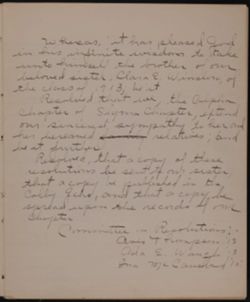 Whereas, it has pleased God
in his infinite wisdom to take
unto himself the brother of our
beloved sister Clara E. Winslow, of
the class of 1913, be it
Resolved that we, the Alpha
Chapter of Sigma Kappa, extend
our sincerest sympathy to her and
her bereaved relatives, and
be it further
Resolved, that a copy of these
resolutions be sent to our sister
that a copy be published in the
Colby Echo, and that a copy be
spread upon the records of our
Chapter.
Committee on Resolutions:-
Thompson
Ada E.